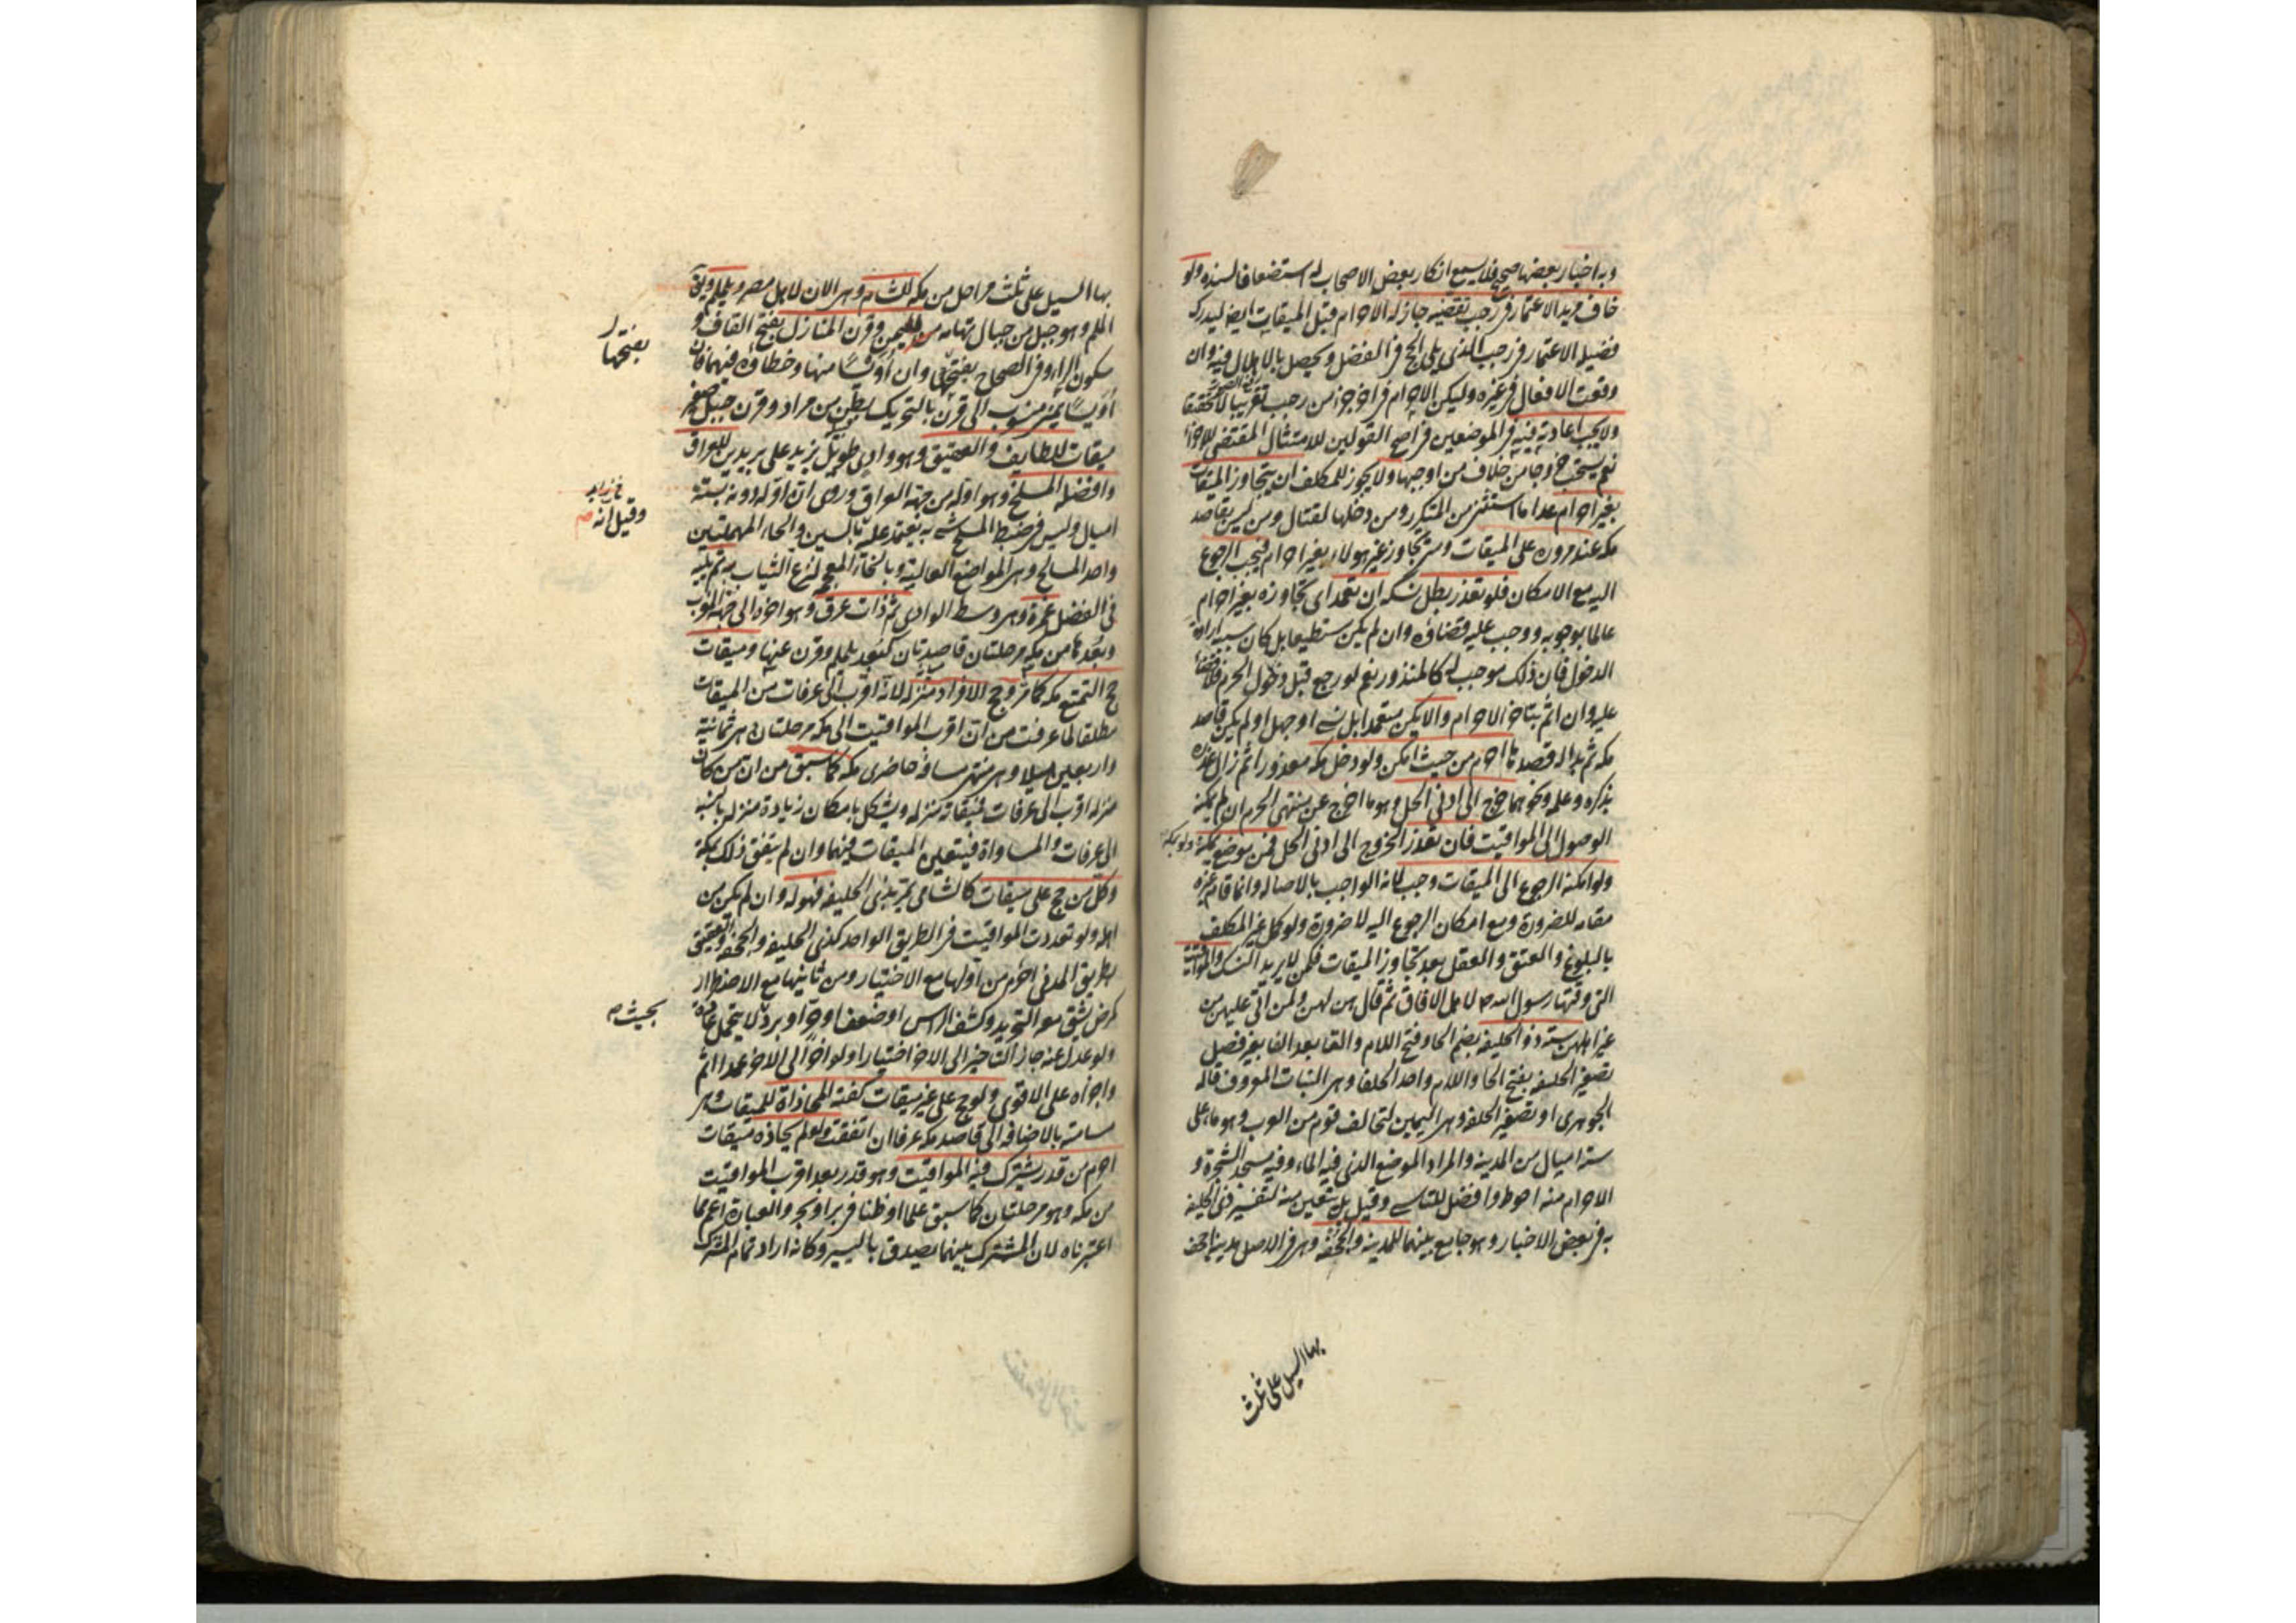 وبه اخبار بعضها صحيح فلا يسمع انكار بعض الاصحاب له استضعافا لسنده ولو
خاف مريد الاعتمار في رجب تقضيه جاز له الاحرام قبل الميقات ايضا ليدرك
فضيلة الاعتمار في رجب الذي يلي الحج في الفضل ويحصل بالاهلال فيه وان
وقعت الافعال في غيره وليكن الاحرام في اخر جزء من رجب تقريبا لا تحقيقا
ولا يجب اعادته فيه في الموضعين في اصح القولين للامتثال المقتضي للاجزاء
نعم يستحب خروجا من خلاف من اوجبها ولا يجوز للمكلف ان يتجاوز الميقات
بغير احرام عدا ما استثني من المتكرر ومن دخلها لقتال ومن ليس بقاصد
مكة عند مروره على الميقات ومتى تجاوز غير هؤلاء بغير احرام فيجب الرجوع
اليه مع الامكان فلو تعذر بطل نسكه ان تعمد اي تجاوزه بغير احرام
عالما بوجوبه ووجب عليه قضاؤه وان لم يكن مستطيعا بل كان سببه ارادة
الدخول فان ذلك موجب له كالمنذور نعم لو رجع قبل دخول الحرم فلا قضاء
عليه وان اثم بتاخير الاحرام والا يكن متعمدا بل نسي او جهل او لم يكن قاصد
مكة ثم بدا له قصدها احرم من حيث امكن ولو دخل مكة معذورا ثم زال عذره
بذكره وعلمه ونحوهما خرج الى ادنى الحل وهو ما خرج عن منتهى الحرم ان لم يمكنه
الوصول الى المواقيت فان تعذر الخروج الى ادنى الحل فمن موضعه بمكة ولو بمكة
ولو امكنه الرجوع الى الميقات وجب لانه الواجب بالاصالة وانما قام غيره
مقامه للضرورة ومع امكان الرجوع اليه لا ضرورة ولو كمل غير المكلف
بالبلوغ والعتق والعقل بعد تجاوز الميقات فكمن لا يريد النسك والمواقيت
التي وقتها رسول الله ص لاهل الافاق ثم قال هن لهن ولمن اتى عليهن من
غير اهلهن ستة ذو الحليفة بضم الحاء وفتح اللام والفاء بعد الفاء بغير فصل
تصغير الحلفة بفتح الحاء واللام واحد الحلفاء وهي النبات المعروف قاله
الجوهري او تصغير الحلفة وهي اليمين لتحالف قوم من العرب وهو ماء على
ستة اميال من المدينة والمراد الموضع الذي فيه الماء وفيه مسجد الشجرة و
الاحرام منه احوط وافضل للتاسي وقيل بل يتعين منه لتفسير ذي الحليفة
به في بعض الاخبار وهو جامع بينهما للمدينة والجحفة وهي في الاصل مدينة اجحف
بها السيل على ثلث
بها السيل على ثلث مراحل من مكة للشام وهي الان لاهل مصر ويلملم ويقال
الملم وهو جبل من جبال تهامة لليمن وقرن المنازل بفتح القاف و
سكون الراء وفي الصحاح بفتحهما وان أويسا منها وخطاؤه فيهما فان
أويسا يمني منسوب الى قرن بالتحريك بطن من مراد وقرن جبل صغير
ميقات للطايف والعقيق وهو وادي طويل يزيد على بريدين للعراق
وافضله المسلخ وهو اوله من جهة العراق وروي ان اوله دونه بستة
اميال وليس في ضبط المسلخ شيء يعتمد عليه بالسين والحاء المهملتين
واحد المسالح وهي المواضع العالية وبالخاء المعجمة لنزع الثياب به ثم يليه
في الفضل غمرة وهي وسط الوادي ثم ذات عرق وهو اخره الى جهة الغرب
وبعدها من مكة مرحلتان قاصدتان كبعد يلملم وقرن عنها وميقات
حج التمتع مكة كما مر وحج الافراد منزله لانه اقرب الى عرفات من الميقات
مطلقا لما عرفت من ان اقرب المواقيت الى مكة مرحلتان هي ثمانية
واربعين ميلا وهي منتهى مسافة حاضري مكة كما سبق من ان من كان
منزله اقرب الى عرفات فميقاته منزله ويشكل بامكان زيادة منزله بالنسبة
الى عرفات والمساواة فيتعين الميقات فيهما وان لم يتفق ذلك بمكة
وكل من حج على ميقات كالشامي يمر بذي الحليفة فهو له وان لم يكن من
اهله ولو تعددت المواقيت في الطريق الواحد كذي الحليفة والجحفة والعقيق
بطريق المدني احرم من اولها مع الاختيار ومن ثانيها مع الاضطرار
كمرض يشق معه التجريد وكشف الراس او ضعف او حر او برد لا يتحمل عادة
ولو عدل عنه جاز التاخير الى الاخر اختيارا ولو اخر الى الاخر عمدا اثم
واجزاه على الاقوى ولو حج على غير ميقات كفته المحاذاة للميقات وهي
مسامتته بالاضافة الى قاصد مكة عرفا ان اتفقت ولو لم يحاذه ميقات
احرم من قدر يشترك فيه المواقيت وهو قدر بعد اقرب المواقيت
من مكة وهو مرحلتان كما سبق علما او ظنا في بر او بحر والعبارة اعم مما
اعتبرناه لان المشترك بينهما يصدق باليسير وكانه اراد تمام المشترك
بفتحها
وقيل انه
بحيث